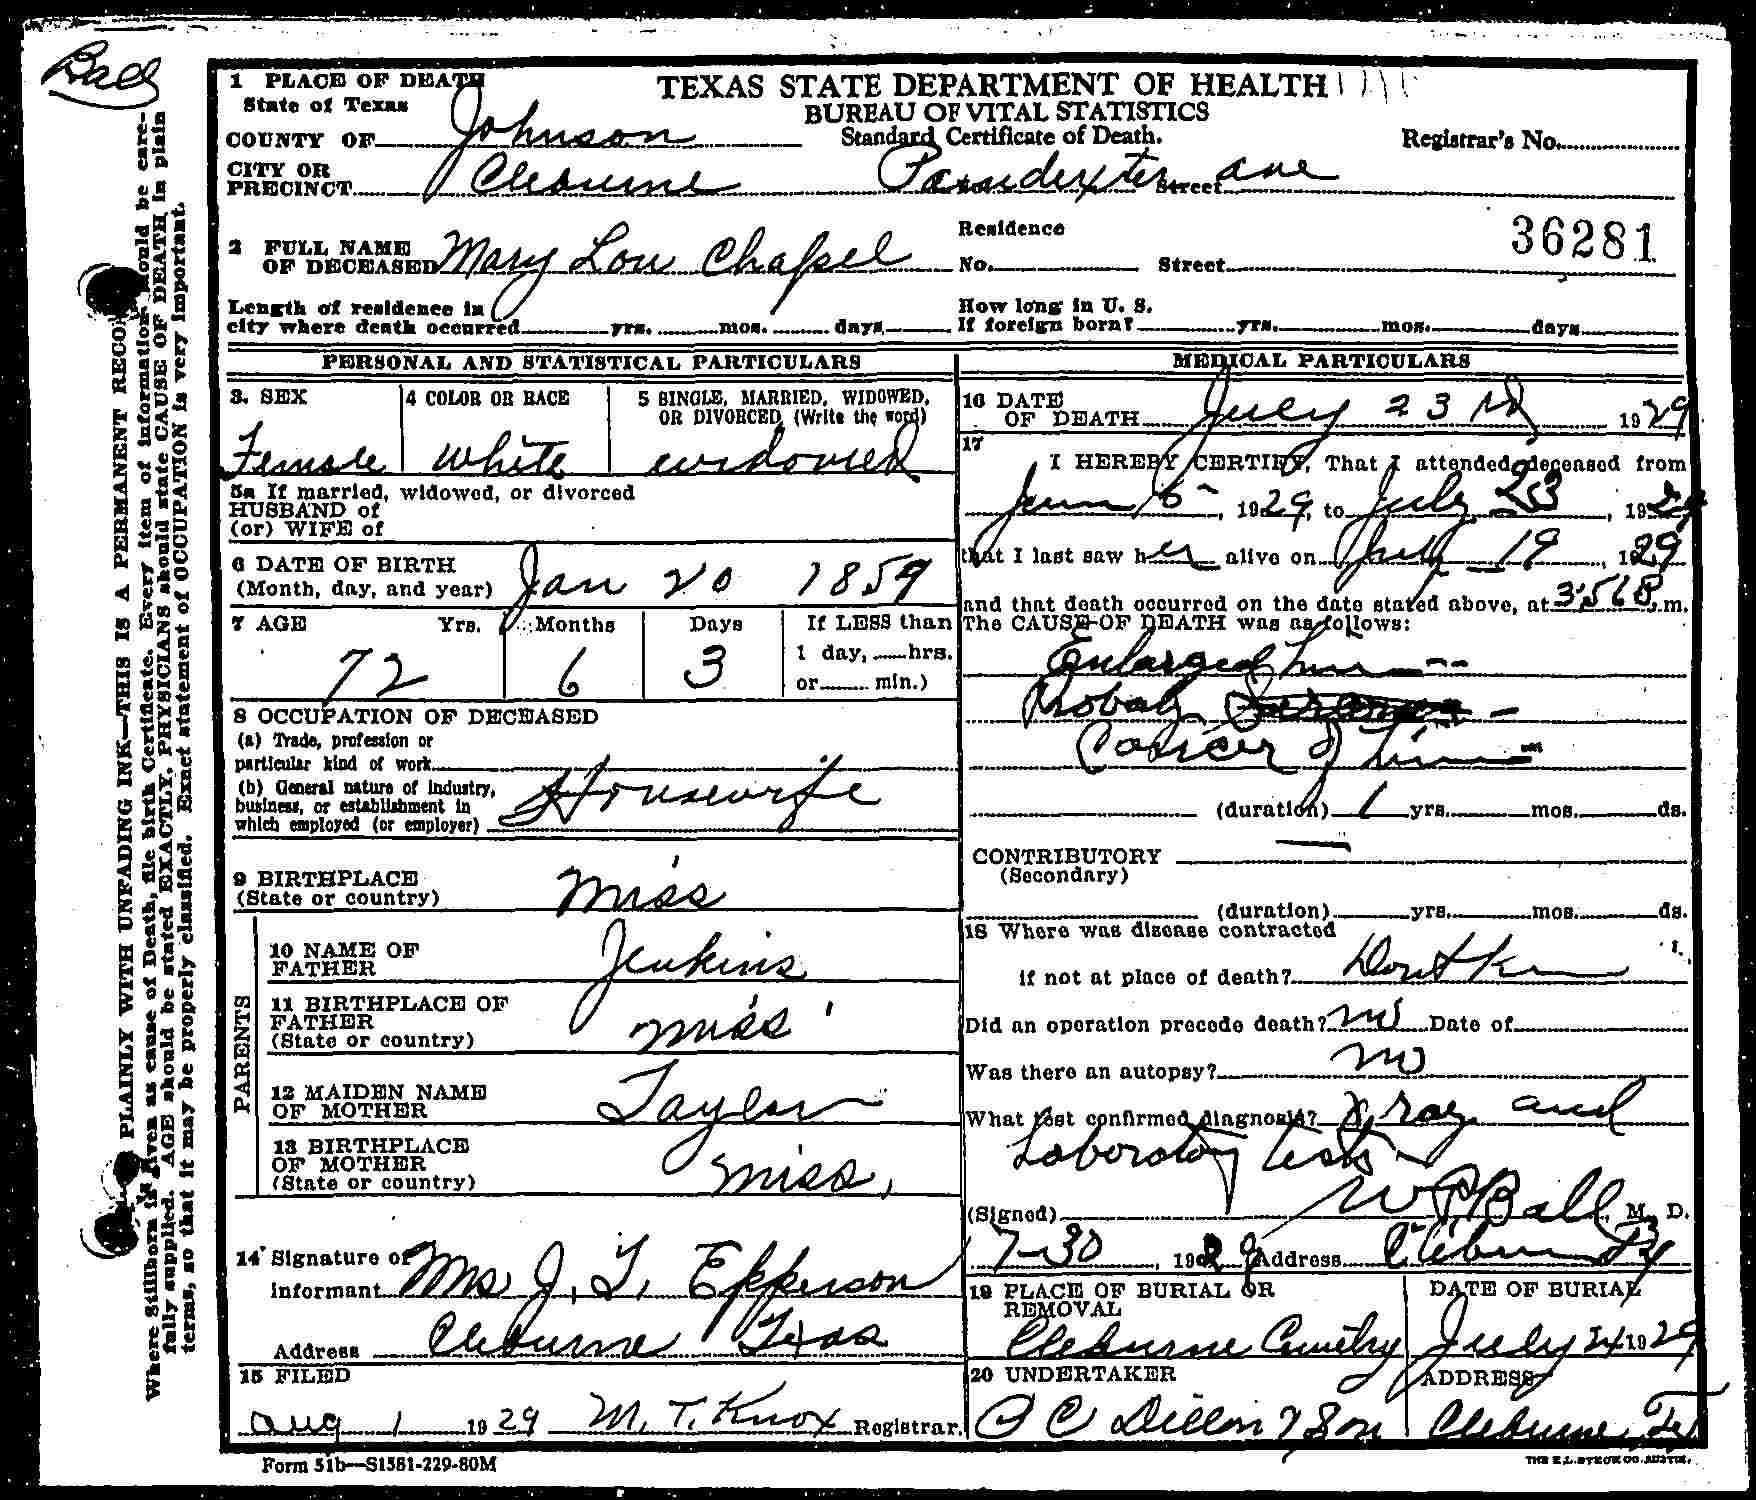 Ball
1 PLACE OF DEATH
State of Texas
TEXAS STATE DEPARTMENT OF HEALTH
BUREAU OF VITAL STATISTICS
Standard Certificate of Death.
COUNTY OF Johnson
Registrar's No.
CITY OR PRECINCT Cleburne Poindexter Street ave
2 FULL NAME OF DECEASED Mary Lou Chapel
Residence
No. Street
36281
Length of residence in
city where death occurred yrs. mos. days
How long in U. S.
If foreign born? yrs. mos. days
PERSONAL AND STATISTICAL PARTICULARS
3. SEX
Female
4 COLOR OR RACE
White
5 SINGLE, MARRIED, WIDOWED, OR DIVORCED (Write the word)
widowed
5a If married, widowed, or divorced
HUSBAND of
(or) WIFE of
6 DATE OF BIRTH
(Month, day, and year) Jan 20 1859
7 AGE Yrs. Months Days
72 6 3
If LESS than
1 day, hrs.
or min.)
8 OCCUPATION OF DECEASED
(a) Trade, profession or
particular kind of work
(b) General nature of industry,
business, or establishment in
which employed (or employer) Housewife
9 BIRTHPLACE
(State or country) Miss
PARENTS
10 NAME OF FATHER Jenkins
11 BIRTHPLACE OF FATHER
(State or country) Miss
12 MAIDEN NAME OF MOTHER Taylor
13 BIRTHPLACE OF MOTHER
(State or country) Miss,
14 Signature of
Informant Mrs J. T. Epperson
Address Cleburne Texas
15 FILED
Aug 1 1929 M. T. Knox Registrar.
MEDICAL PARTICULARS
16 DATE OF DEATH July 23 rd 1929
17
I HEREBY CERTIFY, That I attended deceased from
1929, to July 23, 1929
that I last saw her alive on July 19, 1929
and that death occurred on the date stated above, at m.
The CAUSE OF DEATH was as follows:
Enlarged Liver
Probaly
Cancer of Liver
(duration) 1 yrs. mos. ds.
CONTRIBUTORY
(Secondary)
(duration) yrs. mos. ds.
18 Where was disease contracted
if not at place of death? Dont Know
Did an operation precede death? no Date of
Was there an autopsy? no
What test confirmed diagnosis? X ray and
Laboratory tests
(Signed) W P Ball, M. D.
7-30, 1929 Address Cleburne Tx
19 PLACE OF BURIAL OR REMOVAL
Cleburne Cemetry
DATE OF BURIAL
July 24 1929
20 UNDERTAKER
Dillon & Son
ADDRESS
Cleburne, Tex
Form 51b—S1581-229-80M
THE E.L. STECK CO. AUSTIN.
PLAINLY WITH UNFADING INK—THIS IS A PERMANENT RECORD
Every item of information should be carefully supplied. AGE should be stated EXACTLY. PHYSICIANS should state CAUSE OF DEATH in plain
terms, so that it may be properly classified. Exact statement of OCCUPATION is very important.